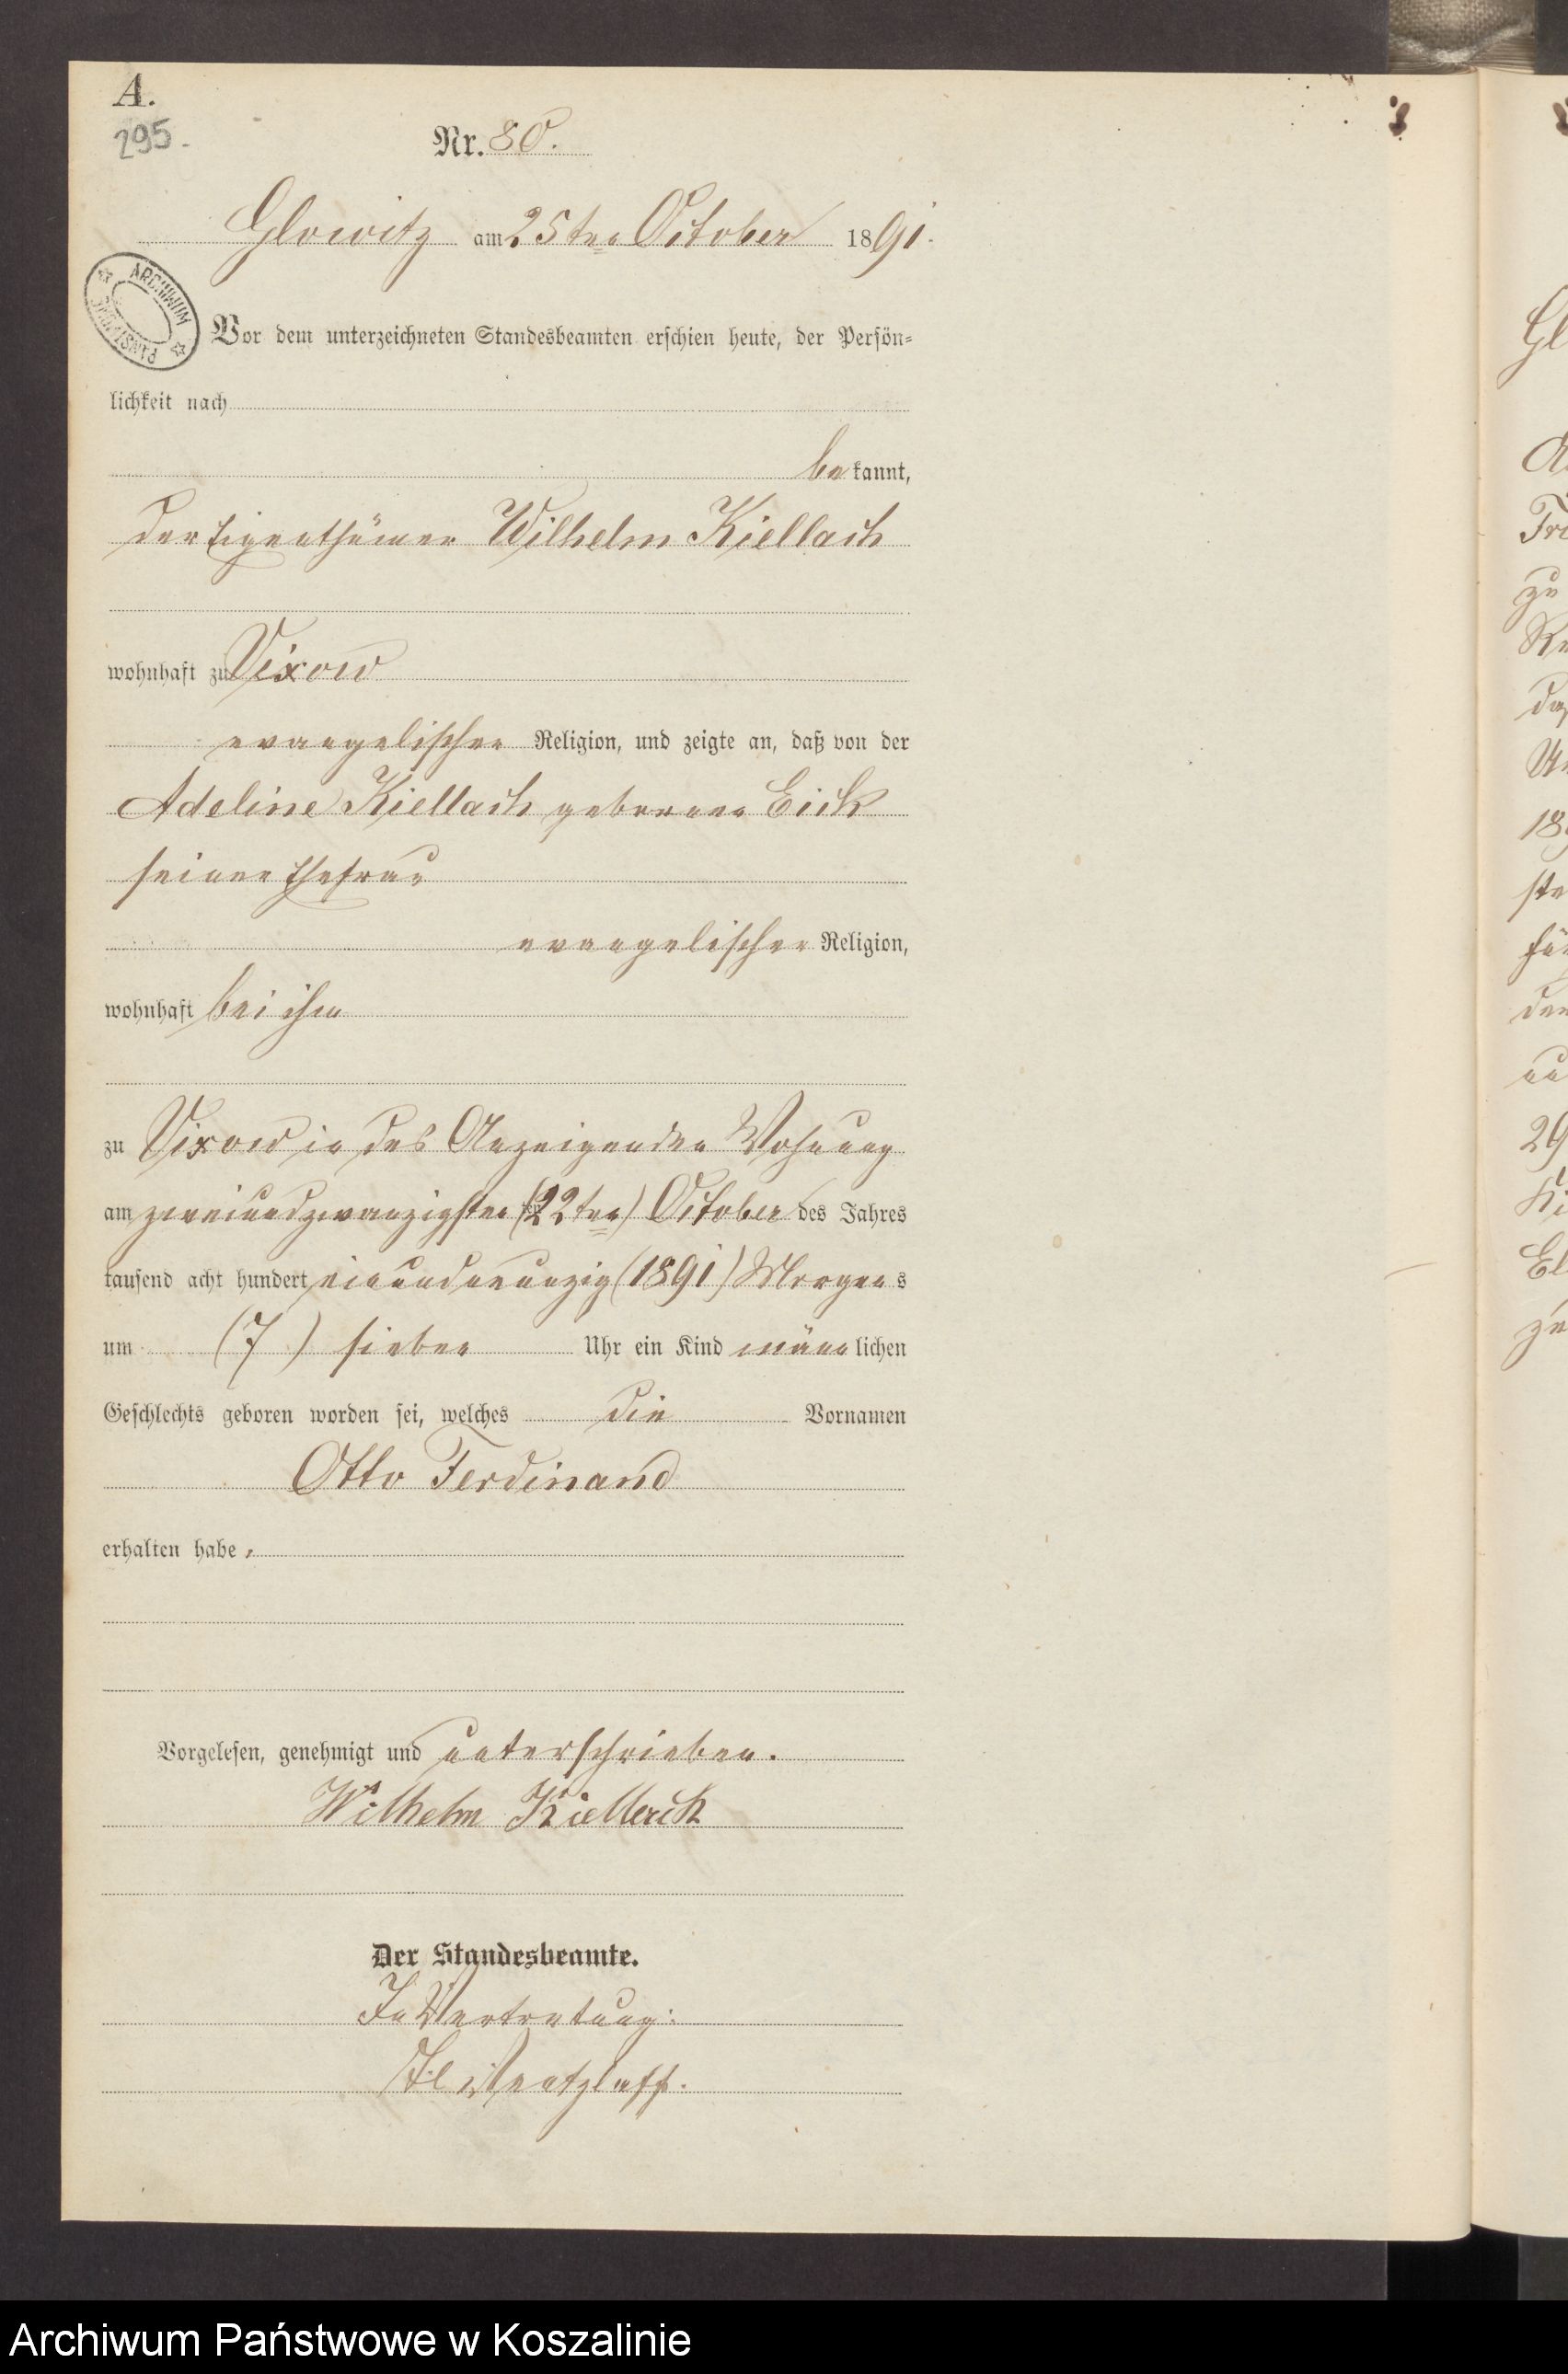 A.
295.
Nr. 80.
Glowitz am 25ten October 1891.
ARCHIWUM PAŃSTWOWE
Vor dem unterzeichneten Standesbeamten erschien heute, der Persön=
lichkeit nach
bekannt,
der Eigenthümer Wilhelm Kiellach
wohnhaft zu Vixow
evangelischer Religion, und zeigte an, daß von der
Adeline Kiellach geborene Eick
seiner Ehefrau
evangelischer Religion,
wohnhaft bei ihm
zu Vixow in des Anzeigenden Wohnung
am zweiundzwanzigsten (22ten) October des Jahres
tausend acht hundert einundneunzig (1891) Morgens
um (7) sieben Uhr ein Kind männlichen
Geschlechts geboren worden sei, welches die Vornamen
Otto Ferdinand
erhalten habe.
Vorgelesen, genehmigt und unterschrieben.
Wilhelm Kiellack
Der Standesbeamte.
In Vertretung:
Wentzlaff.
Archiwum Państwowe w Koszalinie